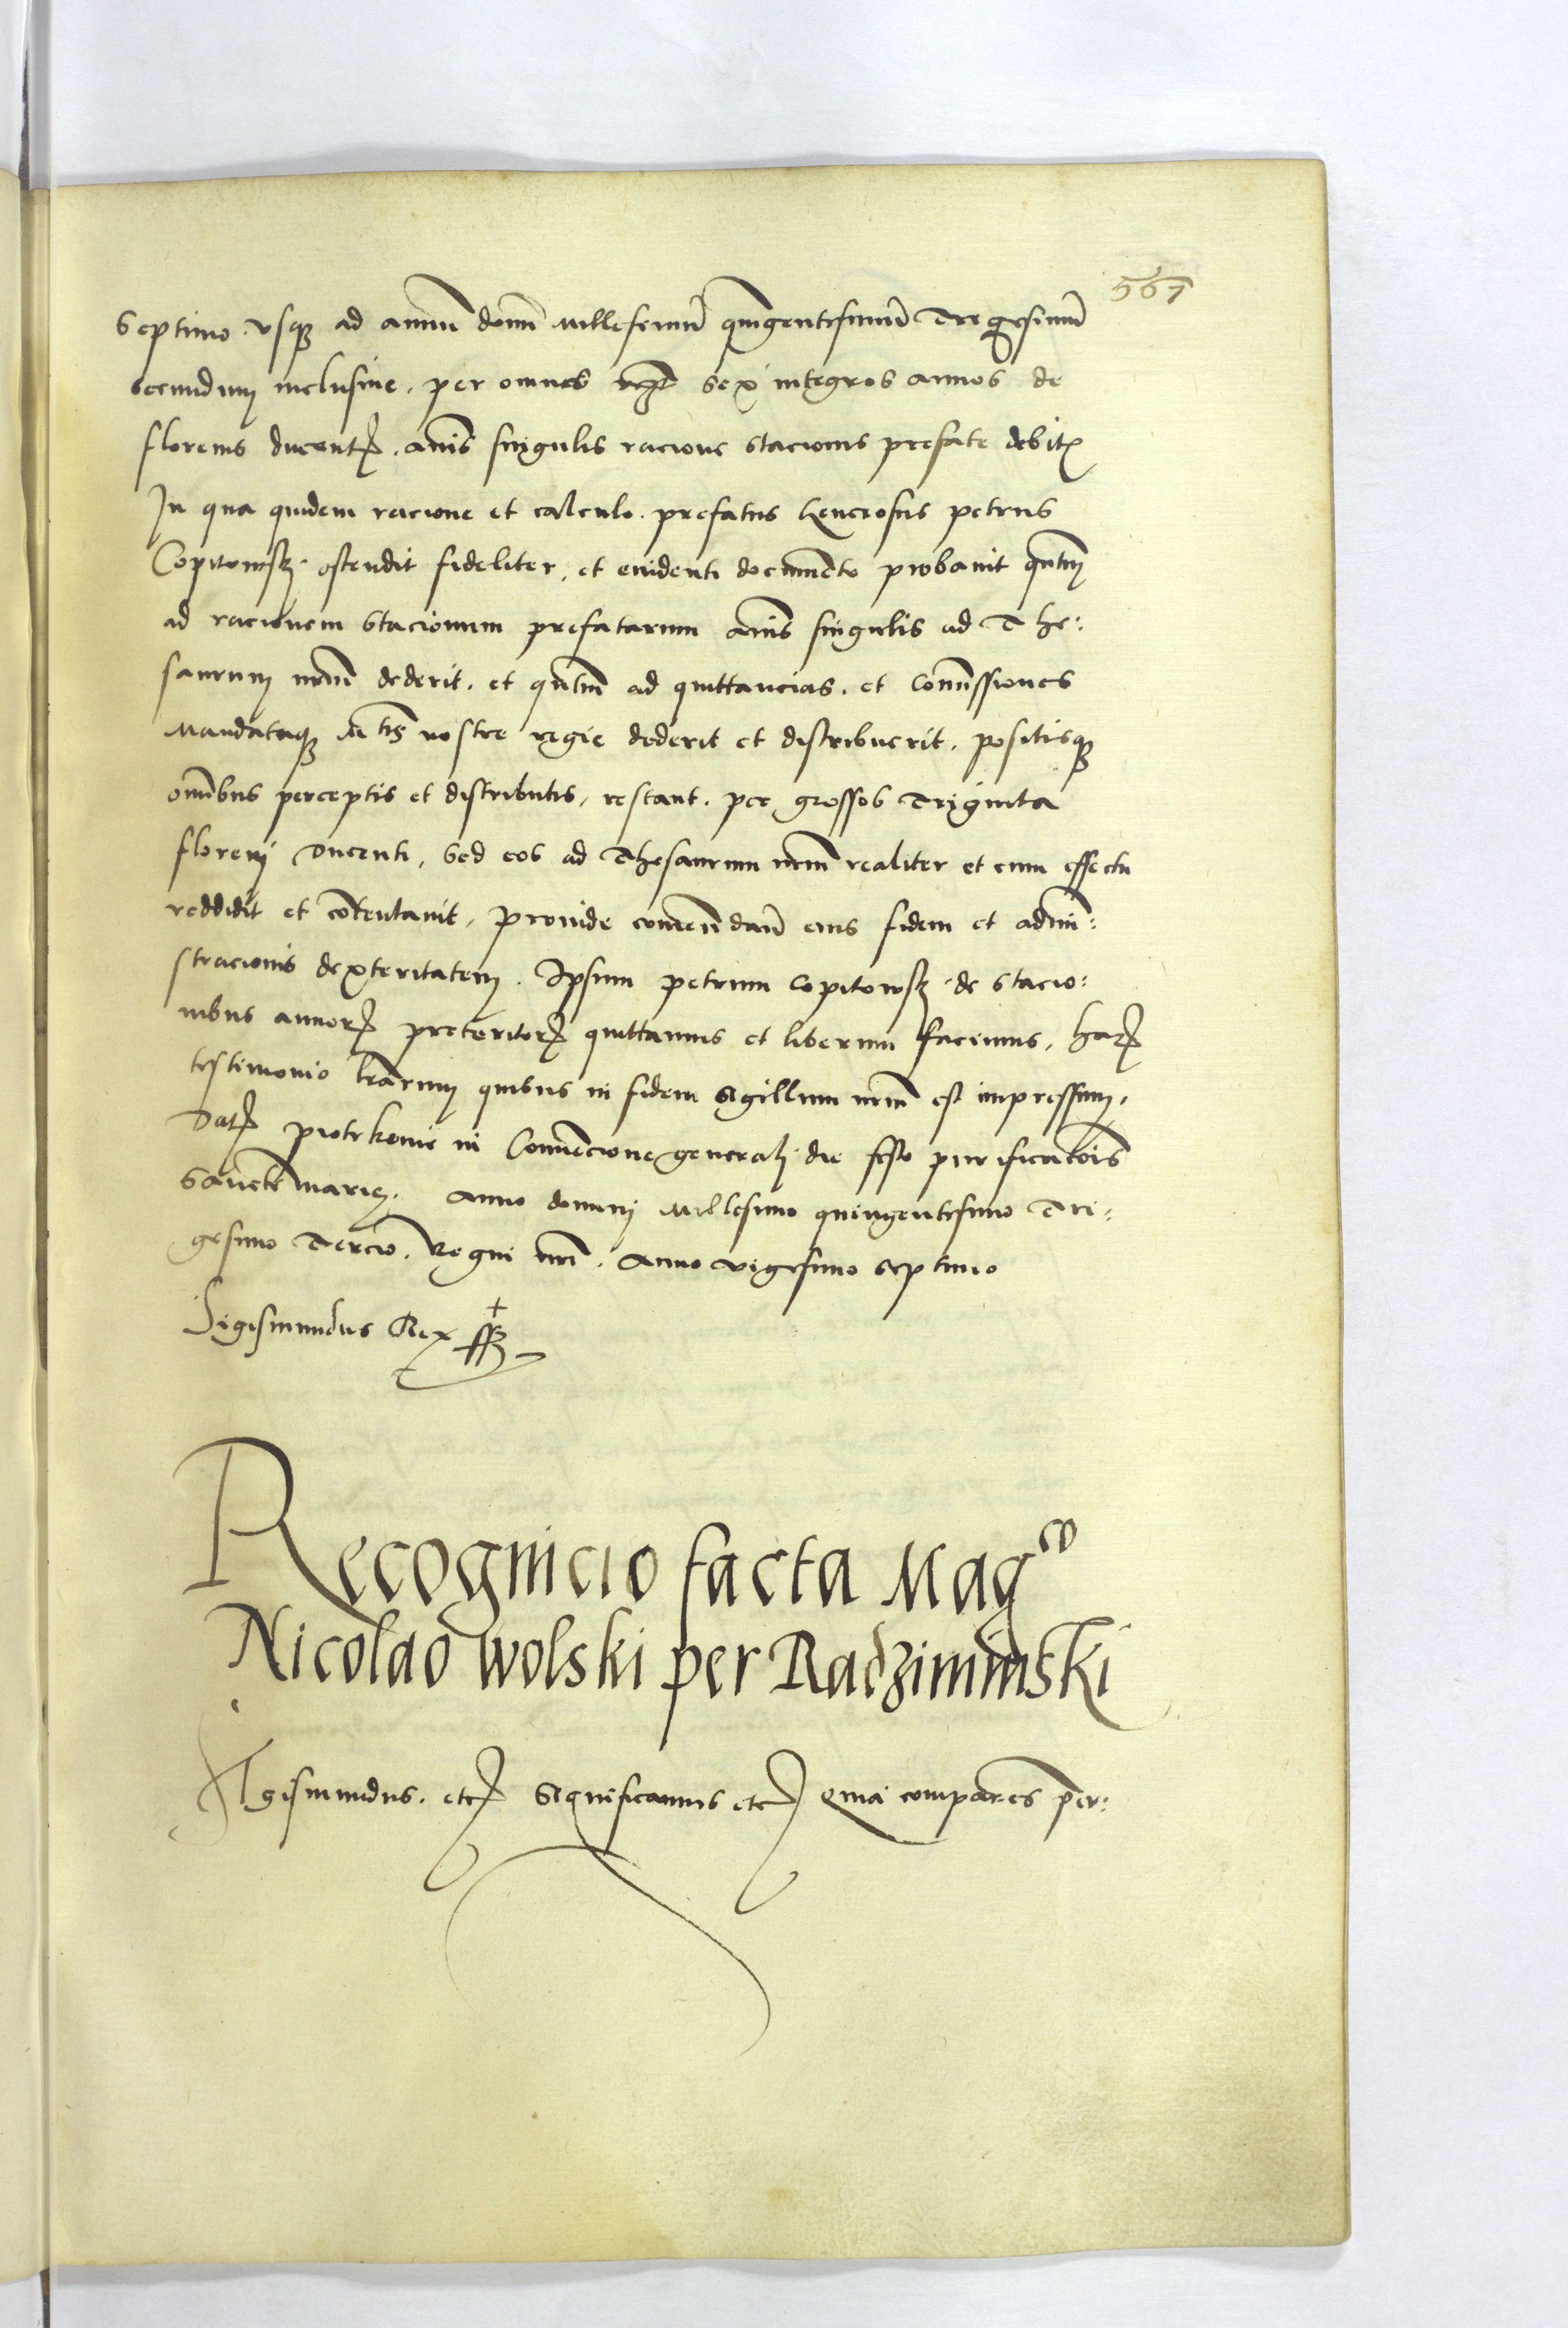 567
Septimo. vsq3 ad annū domī Millesimū quīgentesimū Tregesimū
secundum inclusiue. per omnes sex integros annos de
florenis ducentꝭ. annis singulis racione stacionis prefate debitꝭ
In qua quidem racione et calculo. prefatus Generosus petrus
Copitowsky ostendit fideliter, et euidenti documento probauit quntum
ad racionem stacionum prefatarum annis singulis ad The:
saurum nrūm dederit. et qntum ad quittancias. et Comissiones
Mandataq3 Mtis nostre regie dederit et distribuerit. positisq3
omnibus perceptis et distributis, restant. per grossos Triginta
floreni Ducenti, Sed eos ad Thesaurum nrm realiter et cum effectu
reddidit et cōtentauit, Prouide comendan̄ eius fidem et admini:
stracionis dexteritatem. Ipsum petrum Copitowsky de stacio:
nibus annorꝭ preteritorꝭ quittamus et liberum facimus, harꝭ
testimonio lrārum quibus in fidem Sigillum nrm est impressum.
Datꝭ piotrkouie in Conuencione generali die festo purificatōis
Sancte Marie. Anno domini Millesimo quingentesimo Tri:
gesimo Tercio. Regni nrī. Anno vigesimo septimo
Sigismundus Rex ss
Recognicio facta Magco
Nicolao Wolski per Radziminski
Sigismundus. etcꝭ Significamus etcꝭ Quia comparens per: